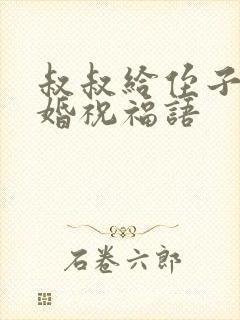 叔叔給侄子
婚祝福語
石卷六郎